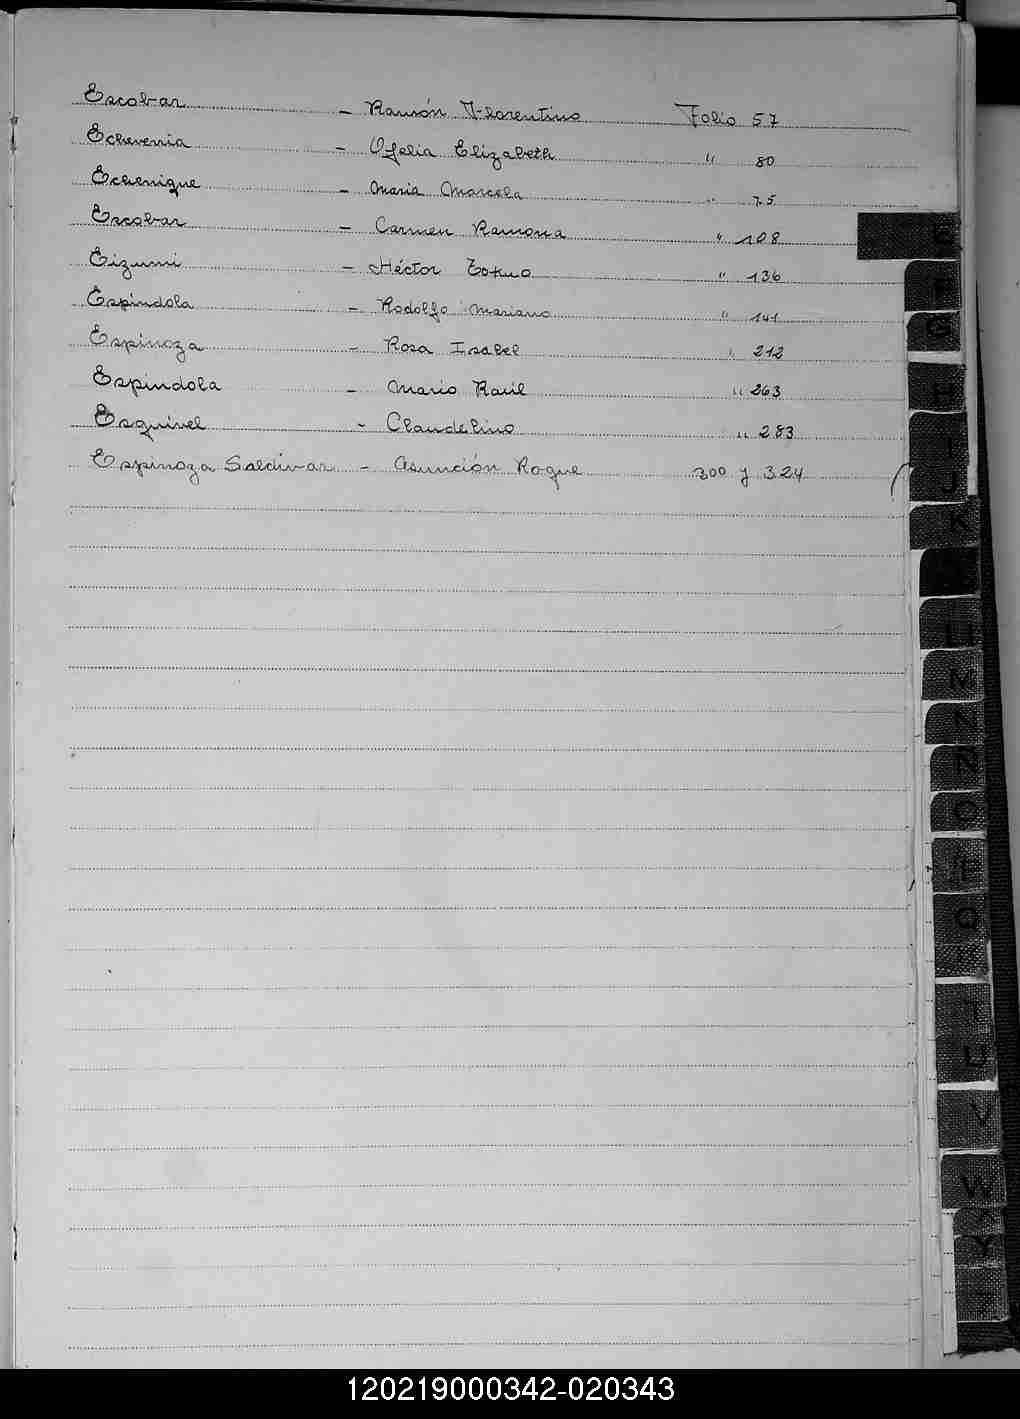 Escobar - Ramón Florentino Folio 57
Echeverria - Ofelia Elizabeth " 80
Echenique - Maria Marcela " 75
Escobar - Carmen Ramona " 108
Eizumi - Héctor Tokuo " 136
Espindola - Rodolfo Mariano " 141
Espinoza - Rosa Isabel " 212
Espindola - Mario Raúl " 263
Esquivel - Claudelino " 283
Espinoza Saldivar - Asunción Roque 300 y 324
E
F
G
H
I
J
K
L
LL
M
N
Ñ
O
P
Q
R
T
U
V
W
X
Y
120219000342-020343